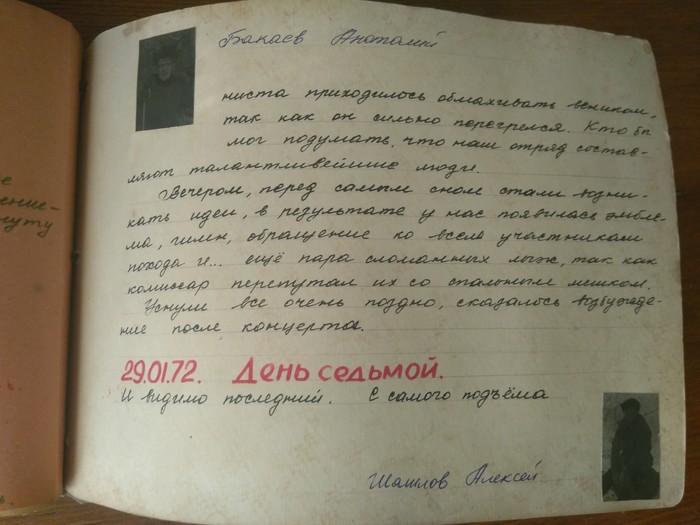 Бакаев Анатолий
ниста приходилось обмахивать веником,
так как он сильно перегрелся. Кто бы
мог подумать, что наш отряд состав-
ляют талантливейшие люди.
Вечером, перед самым сном стали возни-
кать идеи, в результате у нас появилась эмбле-
ма, гимн, обращение ко всем участникам
похода и... ещё пара сломанных лыж, так как
комиссар перепутал их со спальным мешком.
Уснули все очень поздно, сказалось возбужде-
ние после концерта.
29.01.72. День седьмой.
И видимо последний. С самого подъёма
Шашлов Алексей
е
ение-
нуту